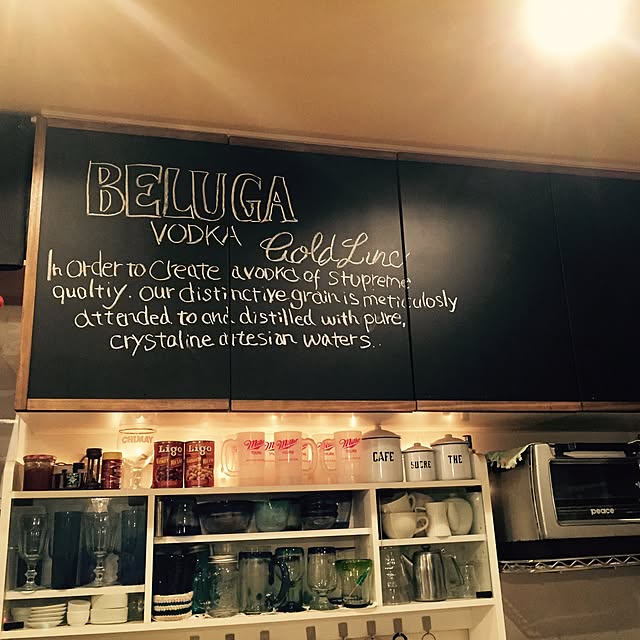 BELUGA
VODKA
Gold Line
In order to create a vodka of stupreme
qualtiy. our distinctive grain is meticulosly
attended to and distilled with pure,
crystaline artesian waters..
CHIMAY
Ligo
Ligo
Miller
Miller
Miller
Miller
CAFE
SUCRE
THE
peace